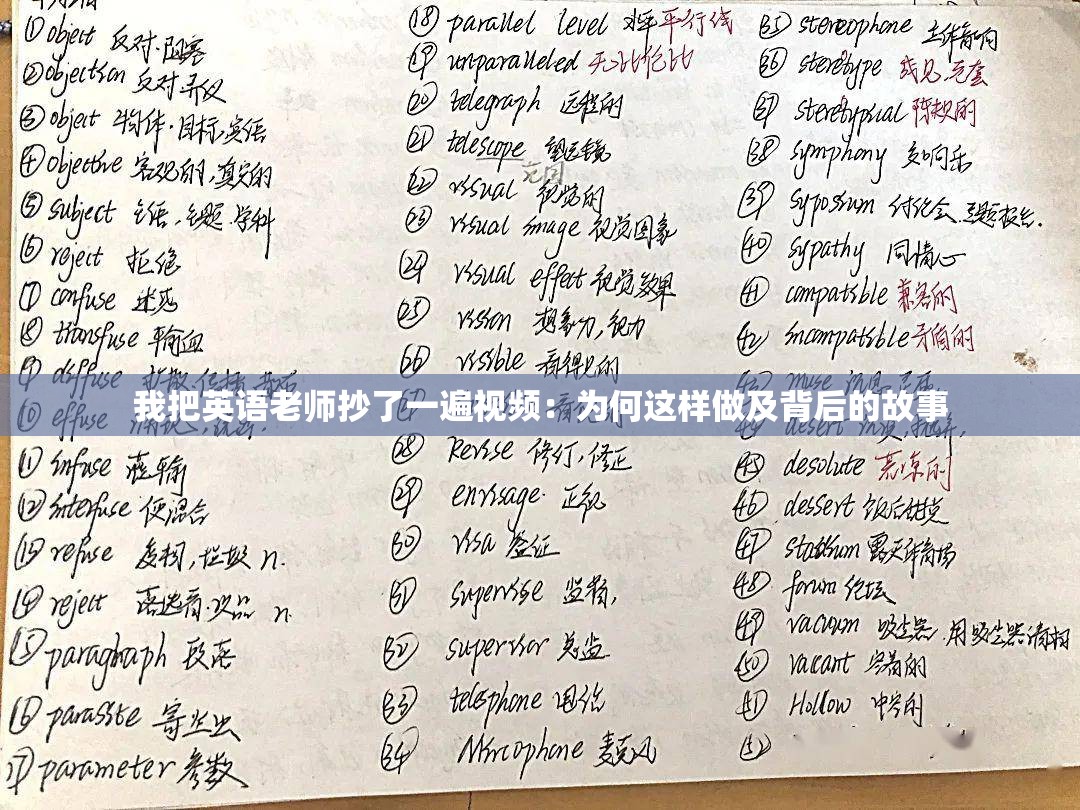 ① object 反对.阻塞
② objection 反对 异议
③ object 物体.目标,宾语
④ objective 客观的,真实的
⑤ subject 主语,主题.学科
⑥ reject 拒绝
⑦ confuse 迷惑
⑧ transfuse 输血
⑨ diffuse
⑩ effuse
⑪ infuse 灌输
⑫ interfuse 使混合
⑬ refuse 废物,垃圾 n.
⑭ reject 落选者.次品 n.
⑮ paragraph 段落
⑯ parasite 寄生虫
⑰ parameter 参数
⑱ parallel level 水平 平行线
⑲ unparalleled 无比伦比
⑳ telegraph 远程的
㉑ telescope 望远镜
㉒ visual 视觉的
㉓ visual image 视觉图象
㉔ visual effect 视觉效果
㉕ vision 想象力,视力
㉖ visible 看得见的
我把英语老师抄了一遍视频：为何这样做及背后的故事
㉘ Revise 修订,修正
㉙ envisage. 正视
㉚ visa 签证
㉛ supervise 监督,
㉜ supervisor 总监
㉝ telephone 电话
㉞ Mircophone 麦克风
㉟ stereophone 立体音响
㊱ steretype 成见,死套
㊲ steretypical 陈规的
㊳ symphony 交响乐
㊴ syposium 讨论会.主题报告.
㊵ sypathy 同情心
㊶ compatible 兼容的
㊷ incompatible 矛盾的
㊸ muse
㊹ desert
㊺ desolute 荒凉的
㊻ dessert 饭后甜点
㊼ stadium 露天体育场
㊽ forum 论坛
㊾ vacuum 吸尘器.用吸尘器清扫
㊿ vacant 空着的
51 Hollow 中空的
52